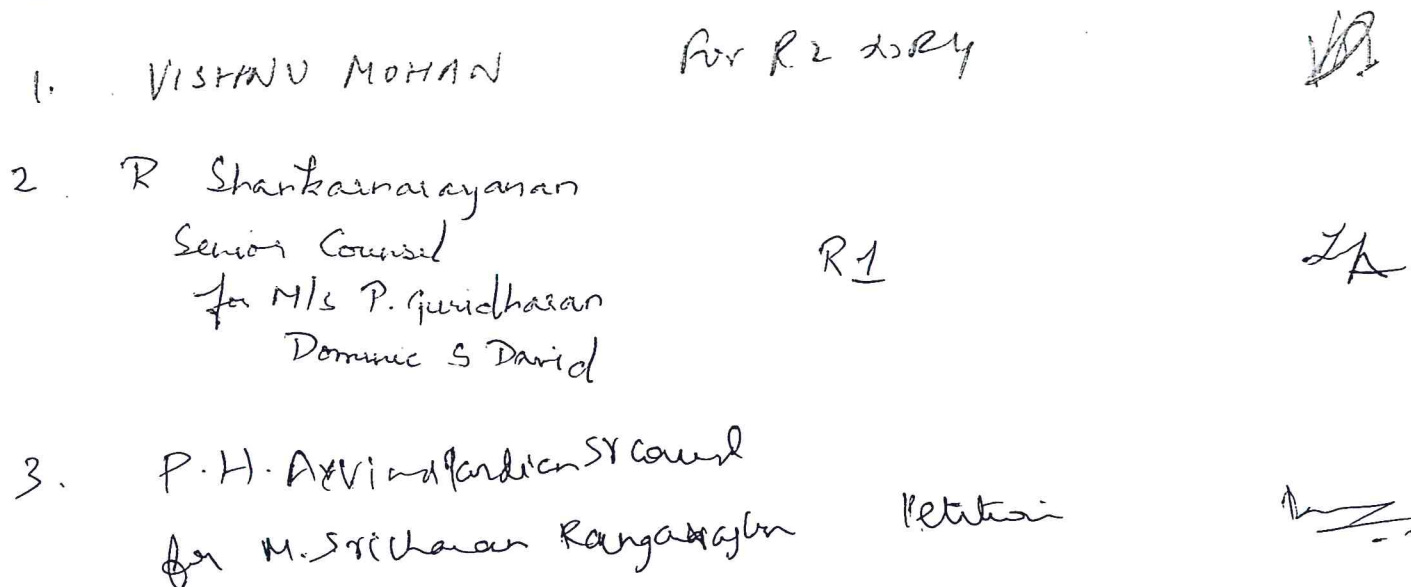 1. VISHNU MOHAN For R2 to R4
2. R Shankarnarayanan
Senior Counsel
for M/s P. Guridharan R1
Dominic S David
3. P.H. Arvindh Pandian Sr Counsel
for M. Sricharan Rangarajan Petition